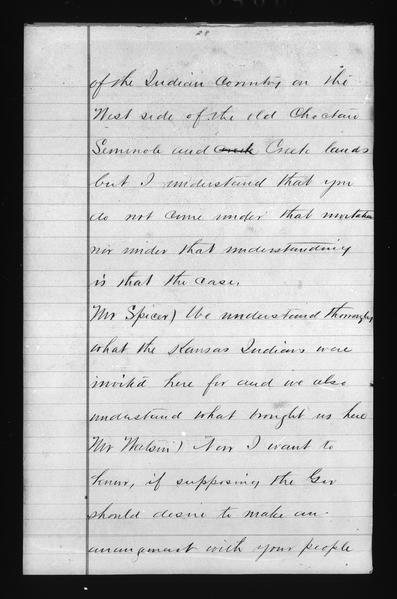 28
of the Indian Country on the
West side of the old Choctaw
Seminole and creek Creek lands
but I understand that you
do not come under that invitation
nor under that understanding
is that the case,
Mr Spicer) We understand thoroughly
what the Kansas Indians were
invited here for and we also
understand what brought us here
Mr Watson) Now I want to
know, if supposing the Gov
should desire to make an
arrangment with your people